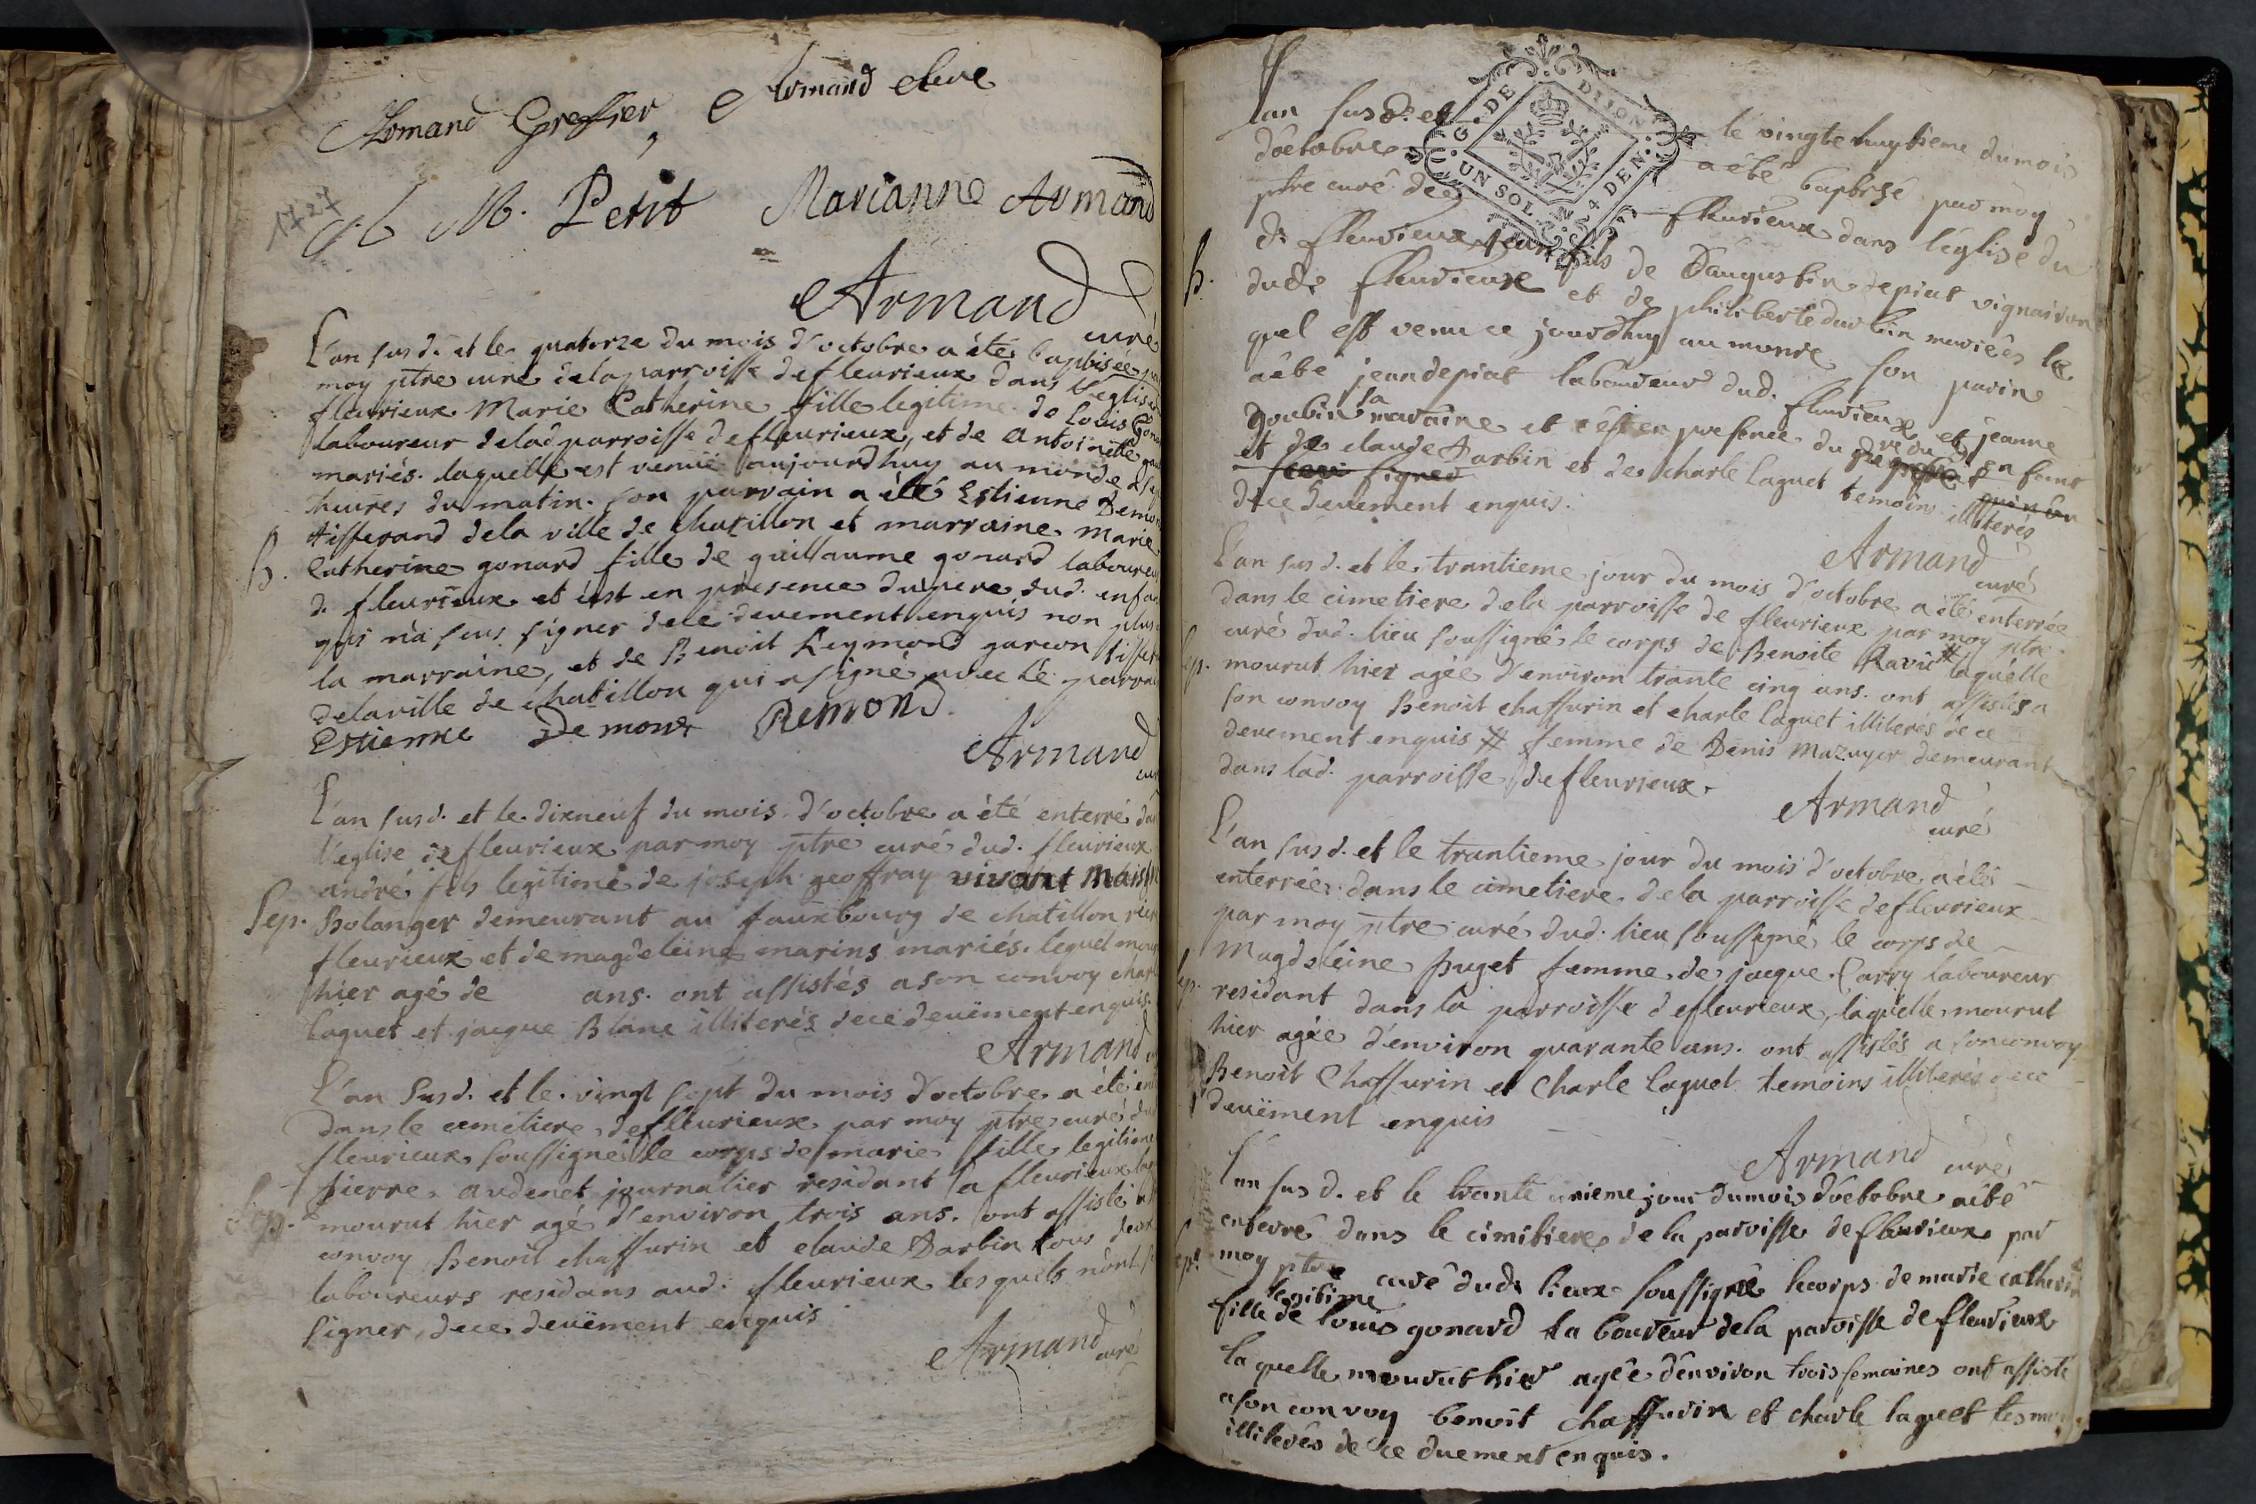 Armand Greffier, Armand cleve
1727
M. Petit Marianne Armand
Armand
curé
L'an susd. et le quatorze du mois d'octobre a été baptisée par
moy ptre curé dela parroisse de fleurieux dans l'eglise
fleurieux Marie Catherine fille legitime de Louis Gona
laboureur delad parroisse de fleurieux, et de antoinette
mariés. laquelle est venuë aujourdhuy au monde
heures du matin. son parrain a été Estienne Demon
tisserand dela ville de chatillon et marraine Marie
B. Catherine gonard fille de guillaume gonard laboureur
d. fleurieux et c'est en presence du pere dud. enfan
qui n'a sceu signer de ce devement enquis non plus
la marraine, et de Benoit Reymond garcon tisser
delaville de chatillon qui a signé avec le parrai
Estienne Demont Remond.
Armand
cur
L'an susd. et le dixneuf du mois d'octobre a été enterré da
l'eglise de fleurieux par moy ptre curé dud. fleurieux
andré fils legitime de joseph geoffray vivant Maistr
Sep. Bolanger demeurant au fauxbourg de chatillon
fleurieux et de magdeleine marins mariés. lequel mour
hier agé de ans. ont assistés a son convoy charl
laguet et jacque Blanc illiterés dece deuëment enquis.
Armand
L'an susd. et le vingt sept du mois d'octobre a été ent
dans le cemetiere de fleurieux par moy ptre curé du
fleurieux soussigné le corps de marie fille legitime
pierre audenet journalier residant a fleurieux laq
Sep. mourut hier agé d'environ trois ans. ont assisté a s
convoy Benoit chaffurin et claude Darbin tous deux
laboureurs residans aud. fleurieux lesquels n'ont s
signer, dece deuëment enquis
Armand
curé
G. DE DIJON
UN SOL. 4 DEN.
lan susd. et le vingte huytieme du mois
doctobre a été baptisé par moy
ptre curé de fleurieux dans l'église du
d. fleurieux jean fils de Daugustin depiat vignairon
B. dud. fleurieux et de philiberte darbin mariés le
quel est venu ce jourdhuy au monde son parin
a été jean depiat laboureur dud. fleurieux et jeanne
goubin sa maraine et c'est en presence du pere du d. enfant
et de claude Darbin et de charle laguet temoins illiterés
dece deuement enquis.
Armand
curé
L'an susd. et le trantieme jour du mois d'octobre a été enterrée
dans le cimetiere dela parroisse de fleurieux par moy ptre
curé dud. lieu soussigné le corps de Benoite Ravie # laquelle
Sep. mourut hier agée d'environ trante cinq ans. ont assistés a
son convoy Benoit chaffurin et charle laguet illiterés de ce
devement enquis # femme de Denis Mazuyer demeurant
dans lad. parroisse de fleurieux.
Armand
curé
L'an susd. et le trantieme jour du mois d'octobre a été
enterrée dans le cimetiere dela parroisse de fleurieux
par moy ptre curé dud. lieu soussigné le corps de
Magdeleine puget femme de jacque Carry laboureur
Sep. residant dans la parroisse de fleurieux, laquelle mourut
hier agée d'environ quarante ans. ont assistés a son convoy
Benoit Chaffurin et Charle laguet temoins illiterés dece
deuëment enquis
Armand
curé
l'an sus d. et le trante unieme jour dumois d'octobre a été
enterré dans le cimitiere de la paroisse de fleurieux par
Sep. moy ptre curé dud. lieux soussigné le corps de marie catheri
fille legitime de louis gonard la boureur dela paroisse de fleurieux
la quelle mourut hier agée d'environ trois semaines ont assisté
a son convoy benoit chaffurin et charle laguet tesmo
illiterés de ce duement enquis.